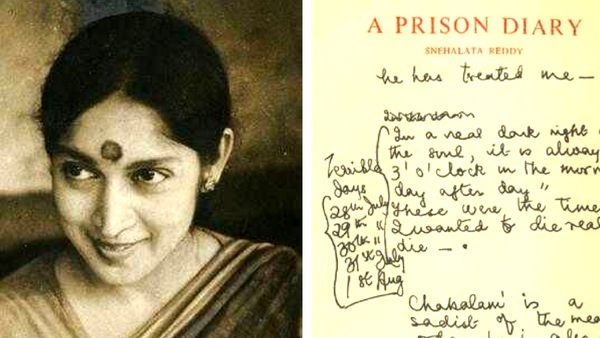 A PRISON DIARY
SNEHALATA REDDY
he has treated me —
In a real dark night o
the soul, it is alway
3' o'clock in the morn
day after day"
These were the time
I wanted to die real
die —.
Terrible
days
28th July
29th "
30th "
31st July
1st Aug
is a
sadist of the mea